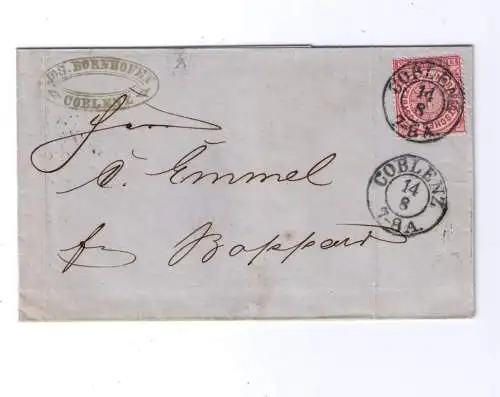 JOS. BORNHOFEN
COBLENZ
COBLENZ
14
8
7-8 A.
Herrn
C. Emmel
COBLENZ
14
8
7-8 A.
Boppard